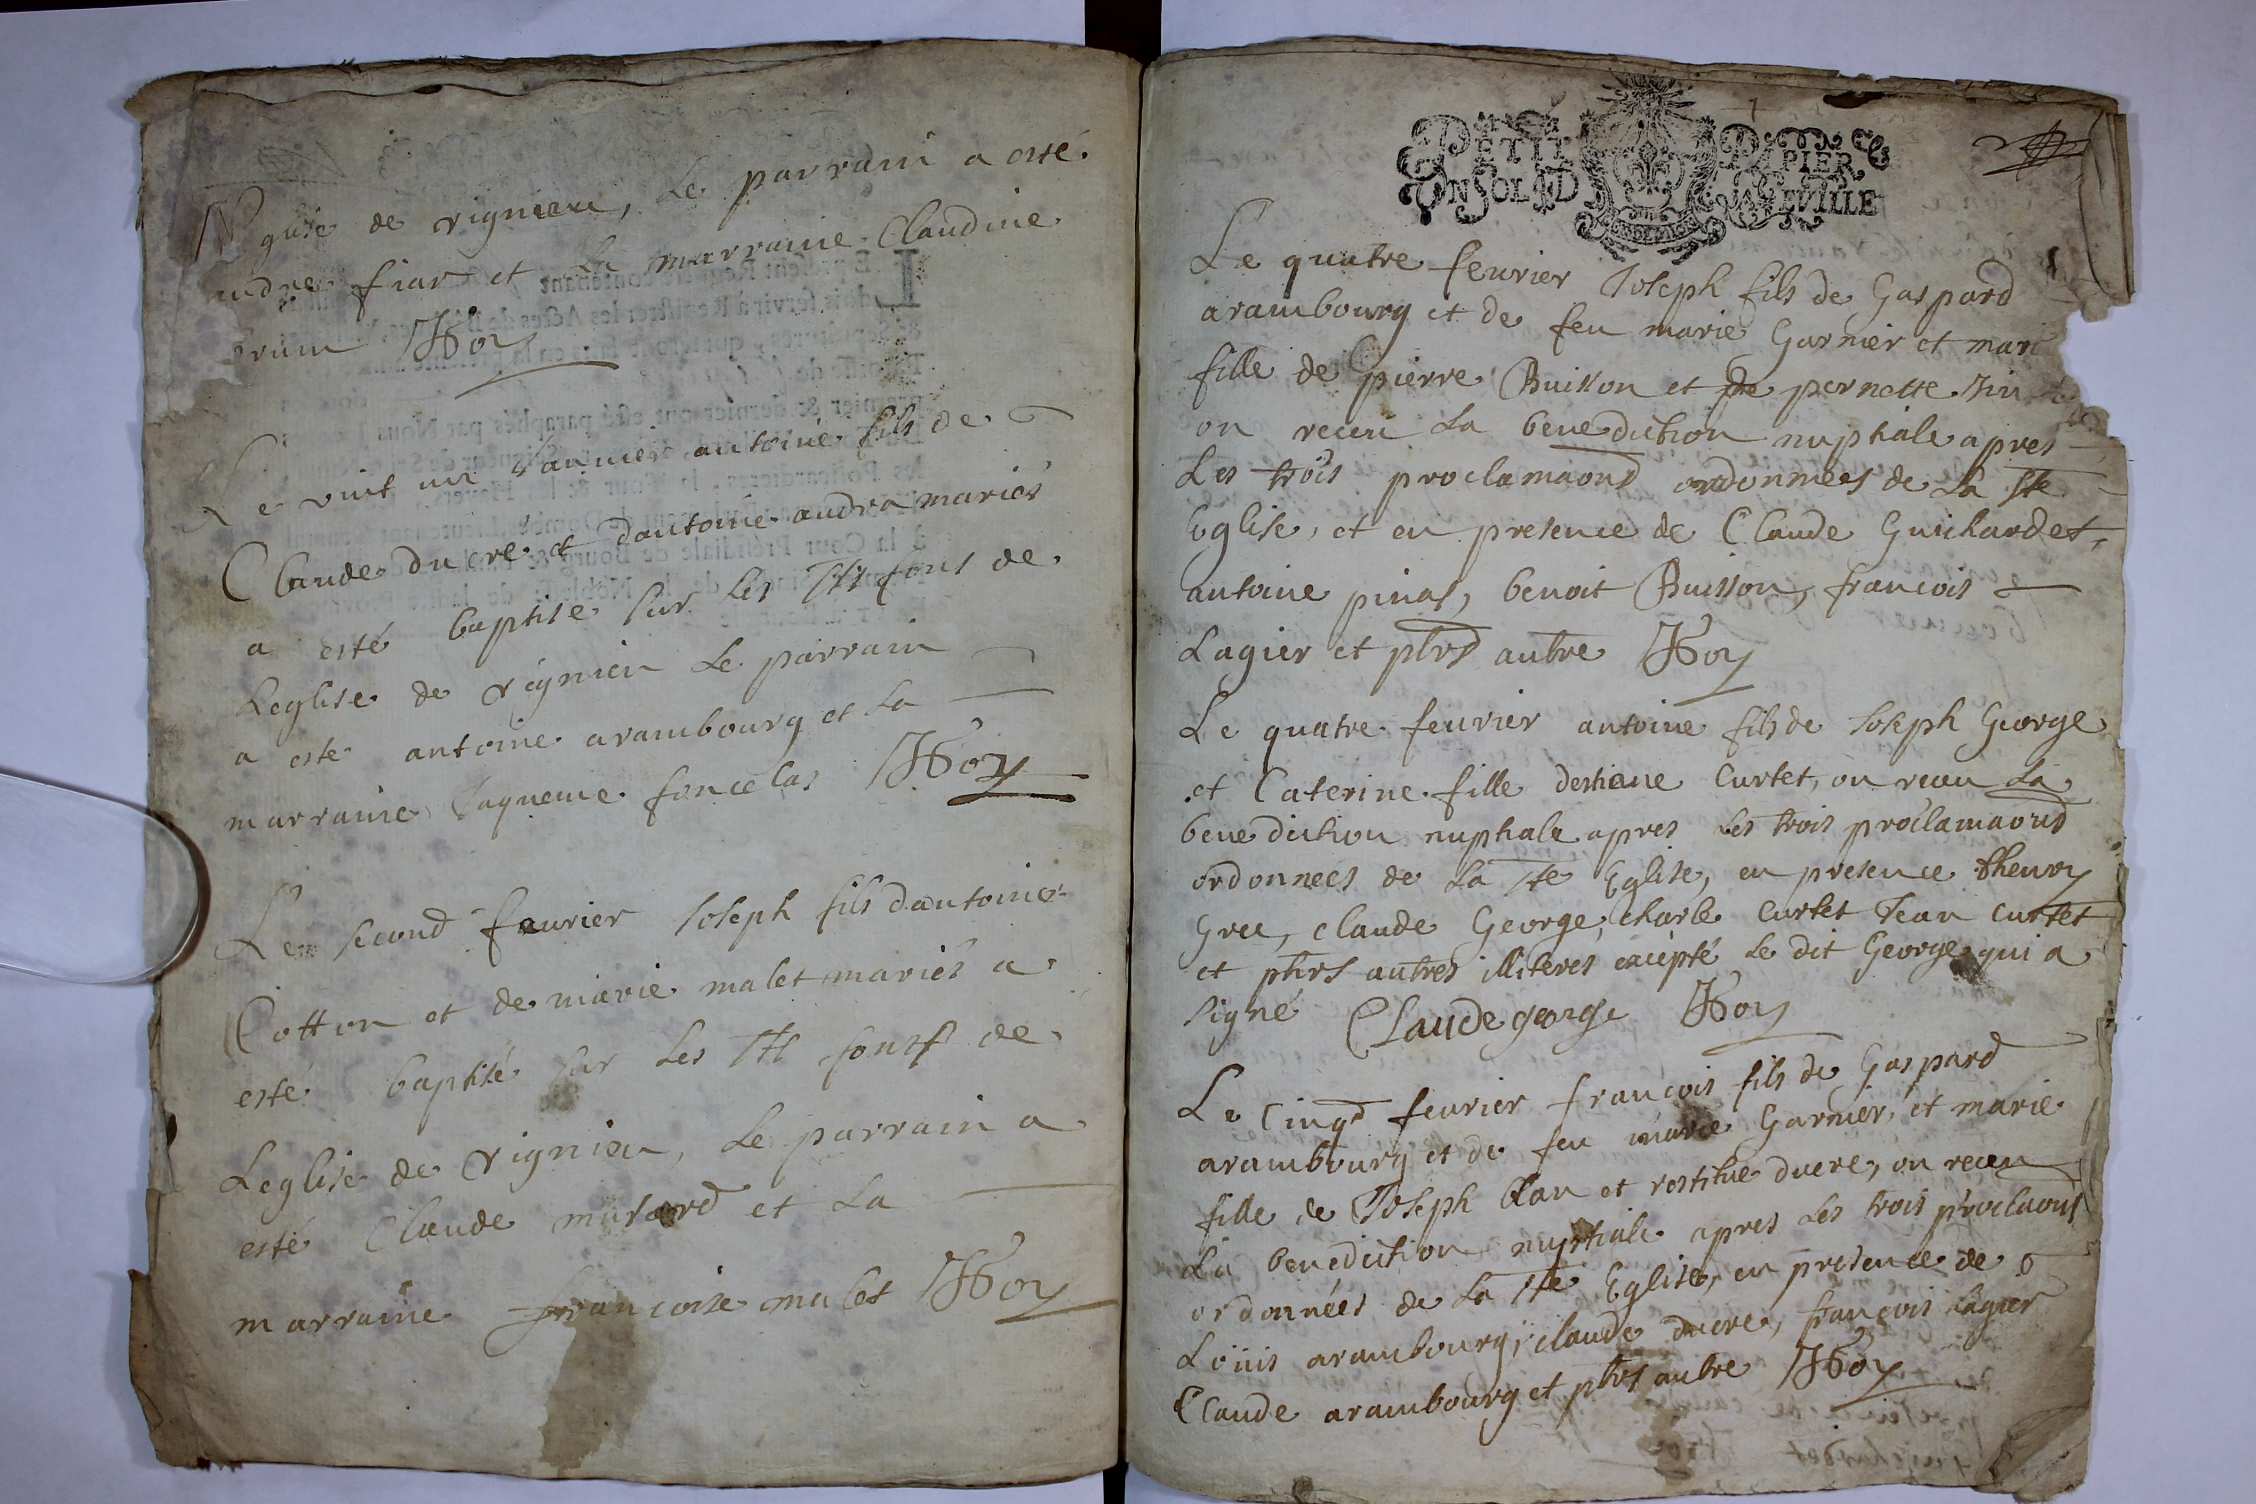 glise de vignieu, le parrain a esté
andre fiar et la marraine Claudine
JRoy
Le vint un Janvier antoine fils de
Claude ducré et dantoine andra mariés
a esté baptisé sur les Sts fons de
Leglise de vignieu le parrain
a esté antoine arambourg et la
marraine Jaqueme foncelas JRoy
Le second feuvrier Joseph fils dantoine
Cotton et de marie malet mariés a
esté baptisé sur les Sts fonts de
Leglise de vignieu, le parrain a
esté Claude musard et la
marraine francoise malet JRoy
PETIT PAPIER
UN SOL 4 D LA FEVILLE
Le quatre feurier Joseph fils de Gaspard
arambourg et de feu marie Garnier et mari
fille de pierre Buisson et de pernette
on receu la benediction nuptiale apres
Les trois proclamaons ordonnées de la Ste
Eglise, et en presence de Claude Guichardet,
antoine pinas, benoit Buisson, francois
Lagier et plrs autre JRoy
Le quatre feurier antoine fils de Joseph George
et Caterine fille destiane Curtet, on receu la
benediction nuptiale apres les trois proclamaons
ordonnees de la Ste Eglise, en presence dhenry
Gree, claude George, charle Curtet Jean Curtet
et plrs autres illiterés excepté le dit George qui a
signé Claude george JRoy
Le Cinqd feurier francois fils de Gaspard
arambourg et de feu marie Garnier, et marie
fille de Joseph Clan et restitue ducre, on receu
la benediction nuptiale apres les trois proclaons
ordonnées de la Ste Eglise, en presence de
Loüis arambourg, claude ducre, françois lagier
Claude arambourg et plrs autre JRoy